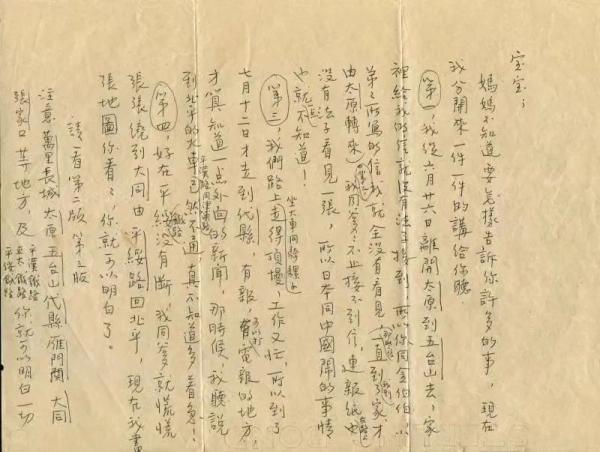 宝宝：
媽媽不知道要怎樣告訴你許多的事，現在
我分開來一件一件的講給你聽
第一，我從六月廿六日離開太原到五台山去，家
裡給我的信就沒有法子接到，所以你同金伯伯
所寫的信我就全沒有看見（一直到我到家，才
由太原轉來）
我同爹爹不止接不到信，連報紙也
沒有法子看見一張，所以日本同中國鬧的事情
也就不知道！
第二，我們路上走得頂慢，工作又忙，所以到了
七月十二日才走到代縣，有報，可以打電報的地方，
才算知道一点外面的新聞。那時候，我聽說
到北平的火車，平漢路同津浦路已然不通，真不知道多着急！
第四，好在平綏鉄路沒有斷，我同爹爹就慌慌
張張繞到大同由平綏路回北平。現在我畫
張地圖你看看，你就可以明白了。
請看第二版 第三版
注意萬里長城 太原 五台山 代縣 雁門關 大同
張家口等地方，及
平漢鉄路
正太鉄路
平綏鉄路
你就可以明白一切